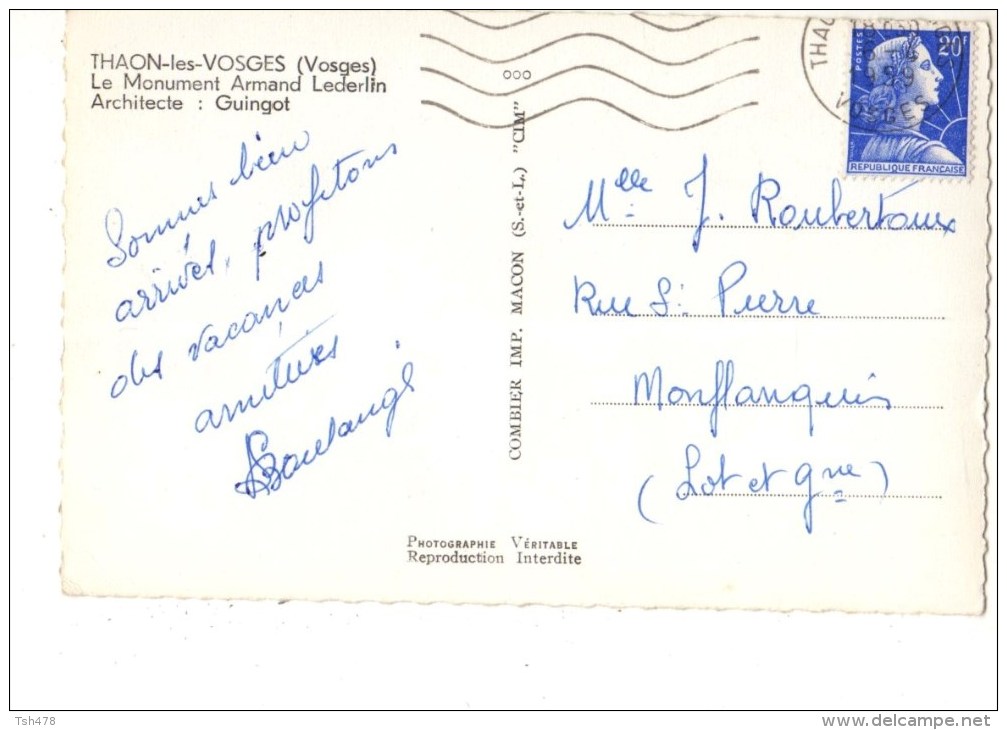 THAON-les-VOSGES (Vosges)
Le Monument Armand Lederlin
Architecte : Guingot
Sommes bien
arrivés, profitons
des vacances
amitiés
Boulangé
COMBIER IMP. MACON (S.-et-L.) "CIM"
THAO
VOSGES
POSTES
20F
REPUBLIQUE FRANÇAISE
Mlle J. Roubertoux
Rue St Pierre
Monflanquin
(Lot et Gne)
PHOTOGRAPHIE VÉRITABLE
Reproduction Interdite
Tsh478
www.delcampe.net